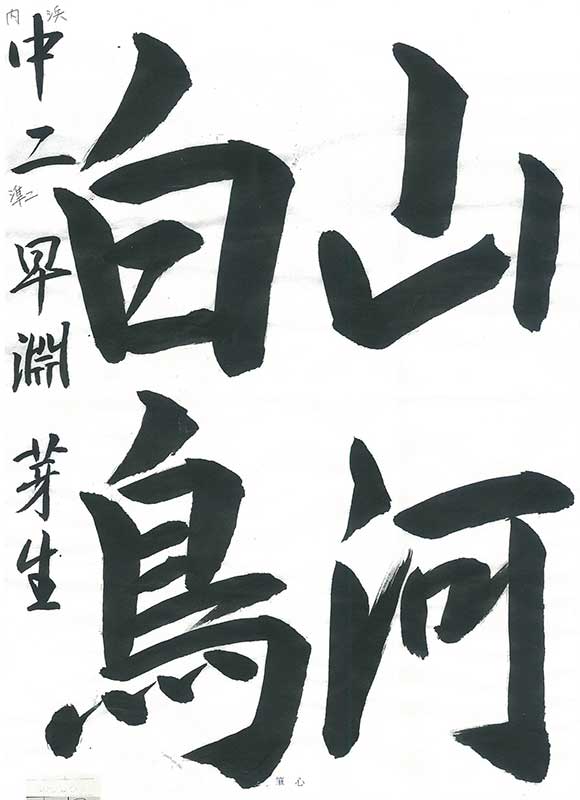 山河
白鳥
中二 早淵 芽生
内浜
準二
心筆